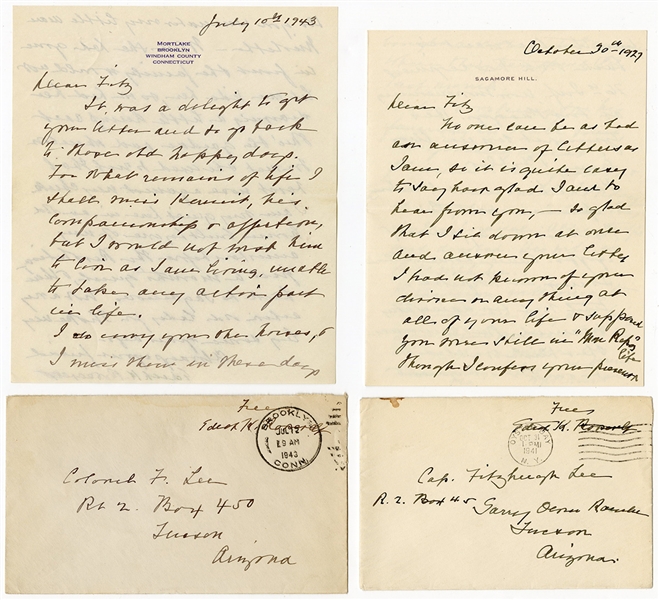 July 10th 1943
MORTLAKE
BROOKLYN
WINDHAM COUNTY
CONNECTICUT
Dear Fitz
It was a delight to get
your letter and to go back
to those old happy days.
For what remains of life I
shall miss Kermit, his
companionship & affection,
but I would not wish him
to live as I am living, unable
to take any active part
in life.
I envy you the horses, &
I miss them in these days
October 30th 19
SAGAMORE HILL.
Dear Fitz
No one can be as bad
an answerer of letters as
I am, so it is quite easy
to say how glad I am to
hear from you, — so glad
that I sit down at once
and answer your letter
I had not known of your
divorce or anything at
all of your life & supposed
you were still in
life
though I confess your
Free
Edith K. Roosevelt
BROOKLYN
JUL 12
9 AM
1943
CONN.
Colonel F. Lee
Rt 2. Box 450
Tucson
Arizona
Free
Edith K. Roosevelt
OYSTER BAY
OCT 31
1941
N.Y.
Cap. Fitzhugh Lee
R. 2. Box 45
Tucson
Arizona.